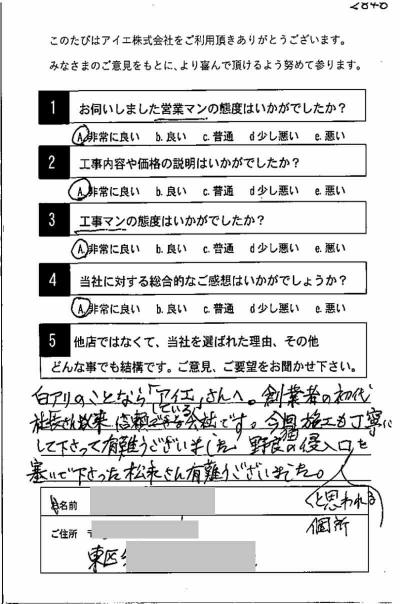 2848
このたびはアイエ株式会社をご利用頂きありがとうございます。
みなさまのご意見をもとに、より喜んで頂けるよう努めて参ります。
1 お伺いしました営業マンの態度はいかがでしたか？
A.非常に良い b.良い c.普通 d少し悪い e.悪い
2 工事内容や価格の説明はいかがでしたか？
A.非常に良い b.良い c.普通 d少し悪い e.悪い
3 工事マンの態度はいかがでしたか？
A.非常に良い b.良い c.普通 d少し悪い e.悪い
4 当社に対する総合的なご感想はいかがでしょうか？
A.非常に良い b.良い c.普通 d少し悪い e.悪い
5 他店ではなくて、当社を選ばれた理由、その他
どんな事でも結構です。ご意見、ご要望をお聞かせ下さい。
白アリのことなら「アイエ」さんへ。創業者の初代
社長さん以来 信頼している会社です。今回 施工も丁寧に
して下さって有難うございました 野良猫の侵入口を
塞いで下さった松永さん有難うございました。
と思われる
個所
お名前
ご住所 〒
東区